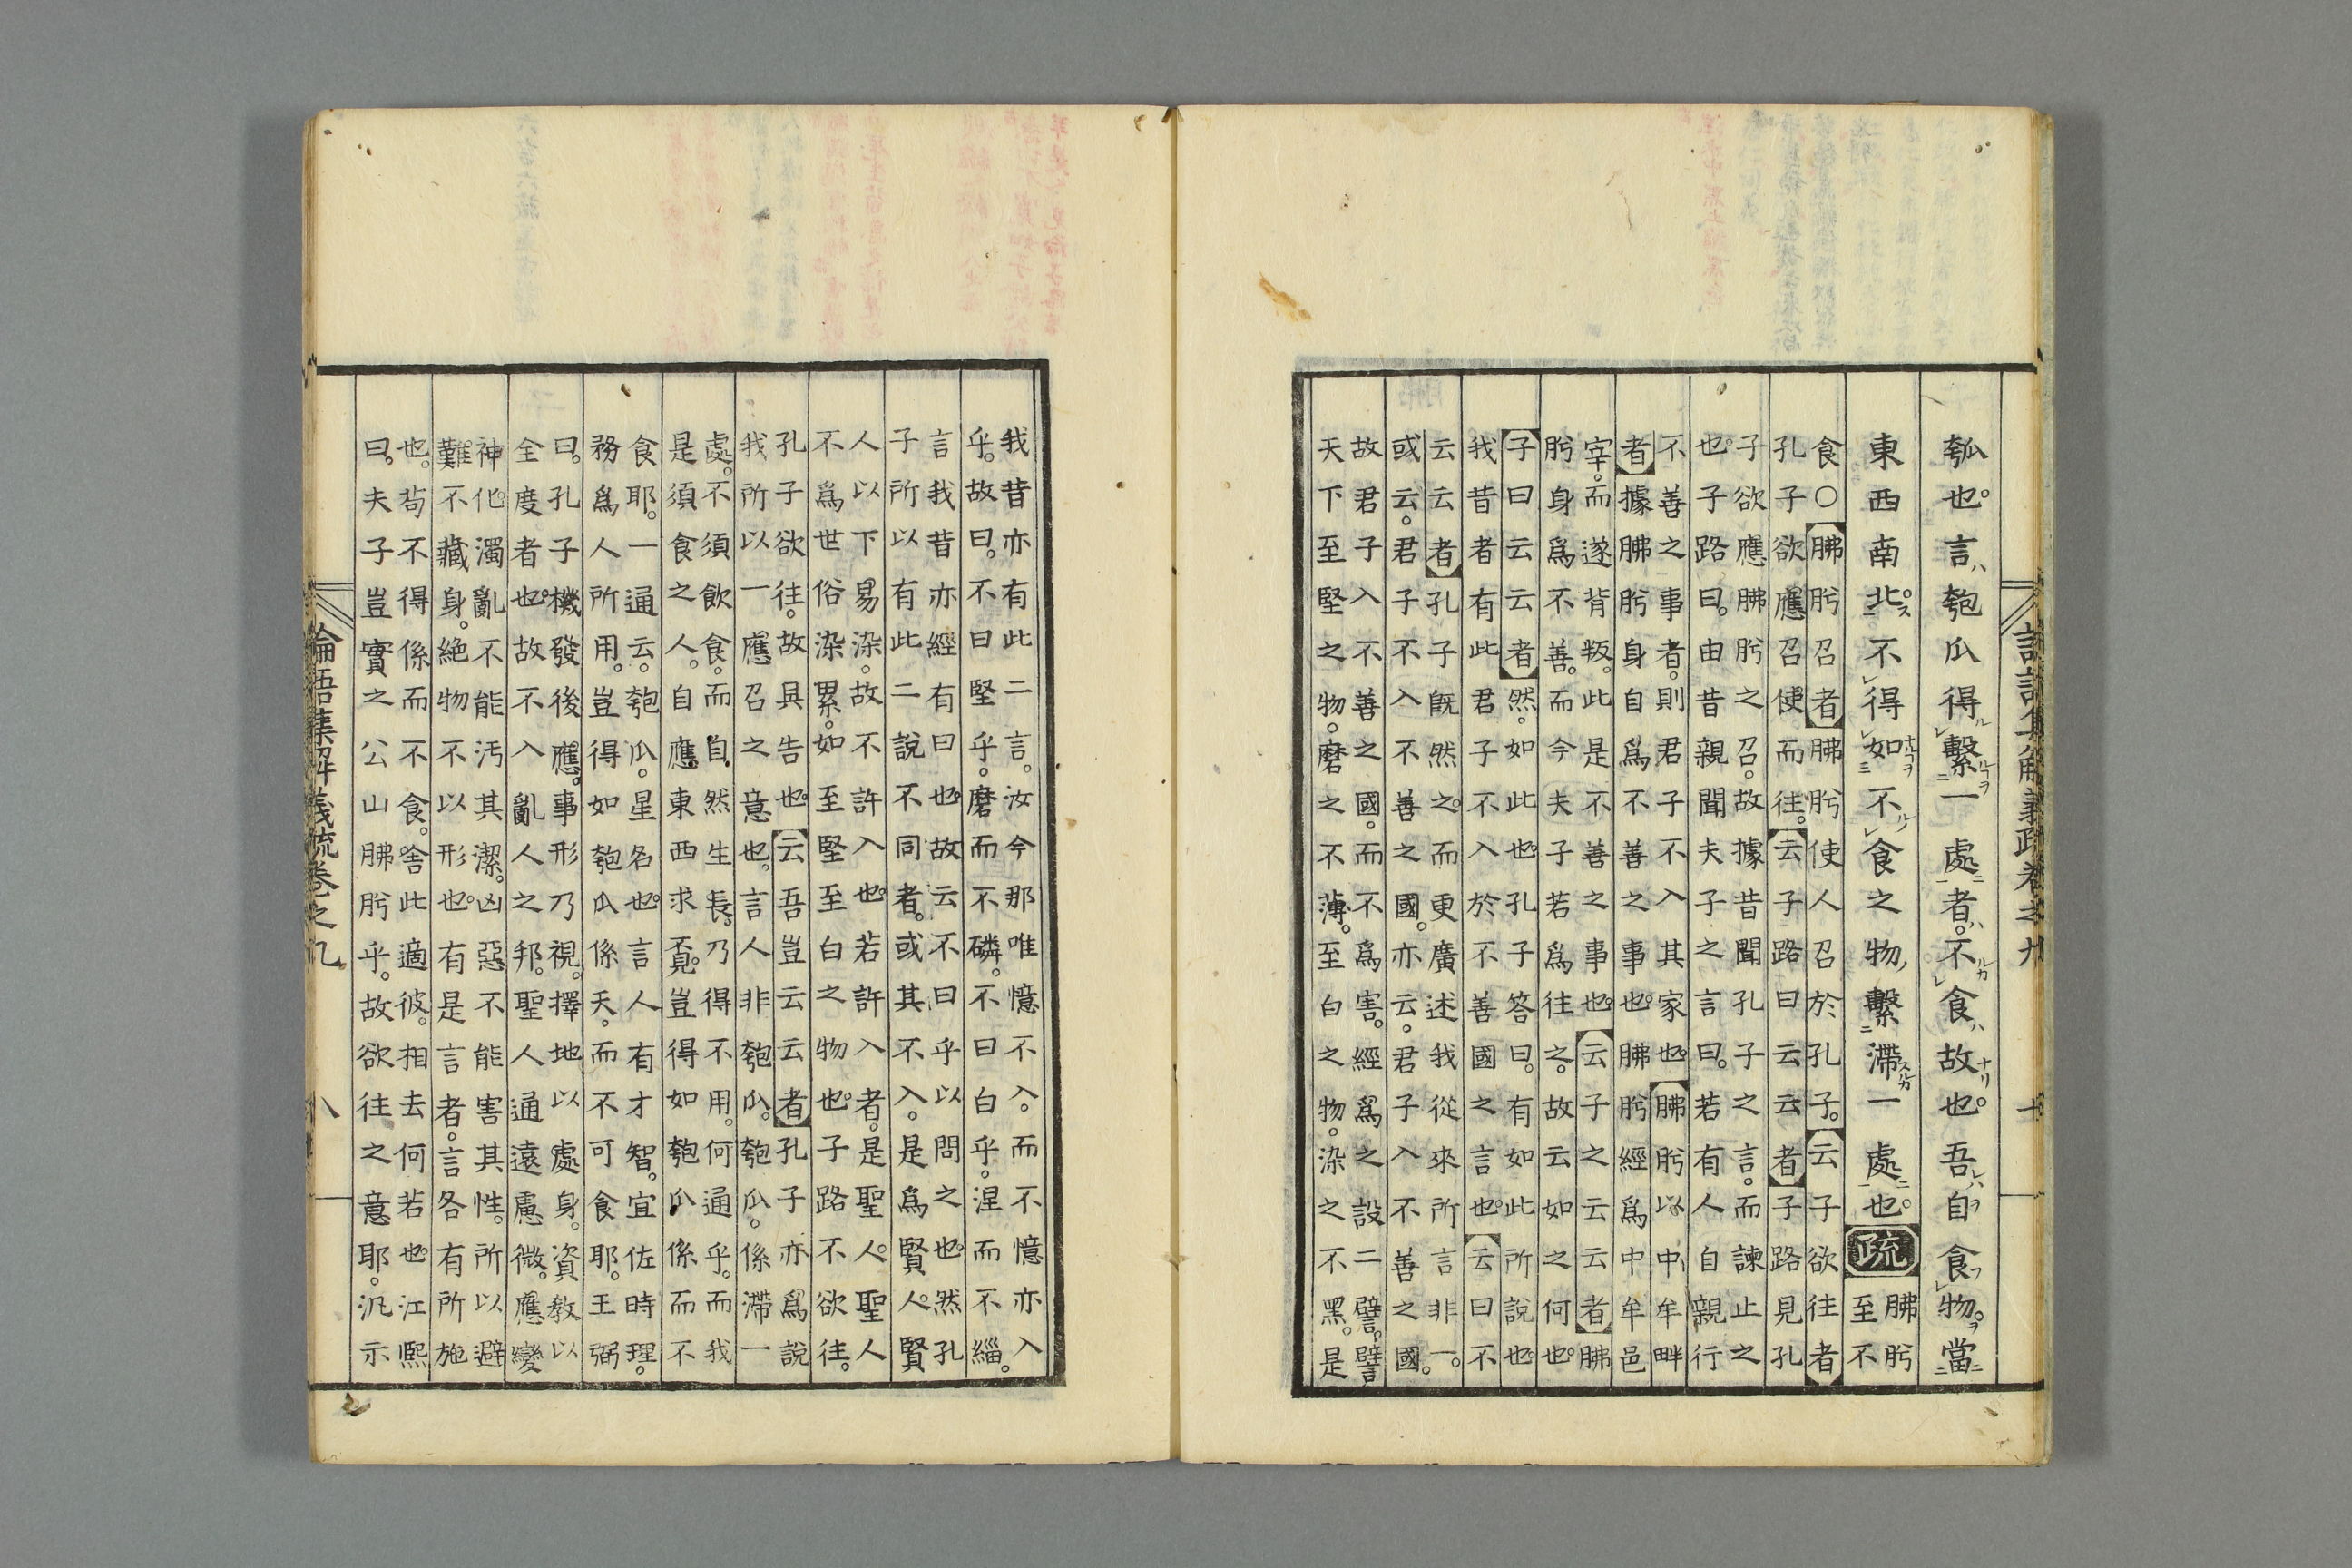 瓠也。言匏瓜得繫一處者。不食故也。吾自食物。當
東西南北。不得如不食之物繫滯一處也。疏
胇肸
至不
食○胇肸召者胇肸使人召於孔子。云子欲往者
孔子欲應召使而往。云子路曰云云者子路見孔
子欲應胇肸之召。故據昔聞孔子之言。而諫止之
也。子路曰。由昔親聞夫子之言曰。若有人自親行
不善之事者。則君子不入其家也。胇肸以中牟畔
者據胇肸身自爲不善之事也。胇肸經爲中牟邑
宰。而遂背叛。此是不善之事也。云子之云云者胇
肸身爲不善。而今夫子若爲往之。故云如之何也。
子曰云云者然。如此也。孔子答曰。有如此所說也。
我昔者有此君子不入於不善國之言也。云曰不
云云者孔子旣然之。而更廣述我從來所言非一。
或云。君子不入不善之國。亦云。君子入不善之國。
故君子入不善之國。而不爲害。經爲之設二譬。譬
天下至堅之物。磨之不薄。至白之物。染之不黑。是
我昔亦有此二言。汝今那唯憶不入。而不憶亦入
乎。故曰。不曰堅乎。磨而不磷。不曰白乎。涅而不緇。
言我昔亦經有曰也。故云不曰乎以問之也。然孔
子所以有此二說不同者。或其不入。是爲賢人。賢
人以下易染。故不許入也。若許入者。是聖人。聖人
不爲世俗染累。如至堅至白之物也。子路不欲往。
孔子欲往。故具告也。云吾豈云云者孔子亦爲說
我所以一應召之意也。言人非匏瓜。匏瓜。係滯一
處。不須飲食。而自然生長。乃得不用。何通乎。而我
是須食之人。自應東西求覓。豈得如匏瓜係而不
食耶。一通云。匏瓜。星名也。言人有才智。宜佐時理。
務爲人所用。豈得如匏瓜係天。而不可食耶。王弼
曰。孔子機發後應。事形乃視。擇地以處身。資教以
全度者也。故不入亂人之邦。聖人通遠慮微。應變
神化。濁亂不能汚其潔。凶惡不能害其性。所以避
難不藏身。絶物不以形也。有是言者。言各有所施
也。苟不得係而不食。舍此適彼。相去何若也。江熙
曰。夫子豈實之公山胇肸乎。故欲往之意耶。汎示
論語集解義疏卷之九 八